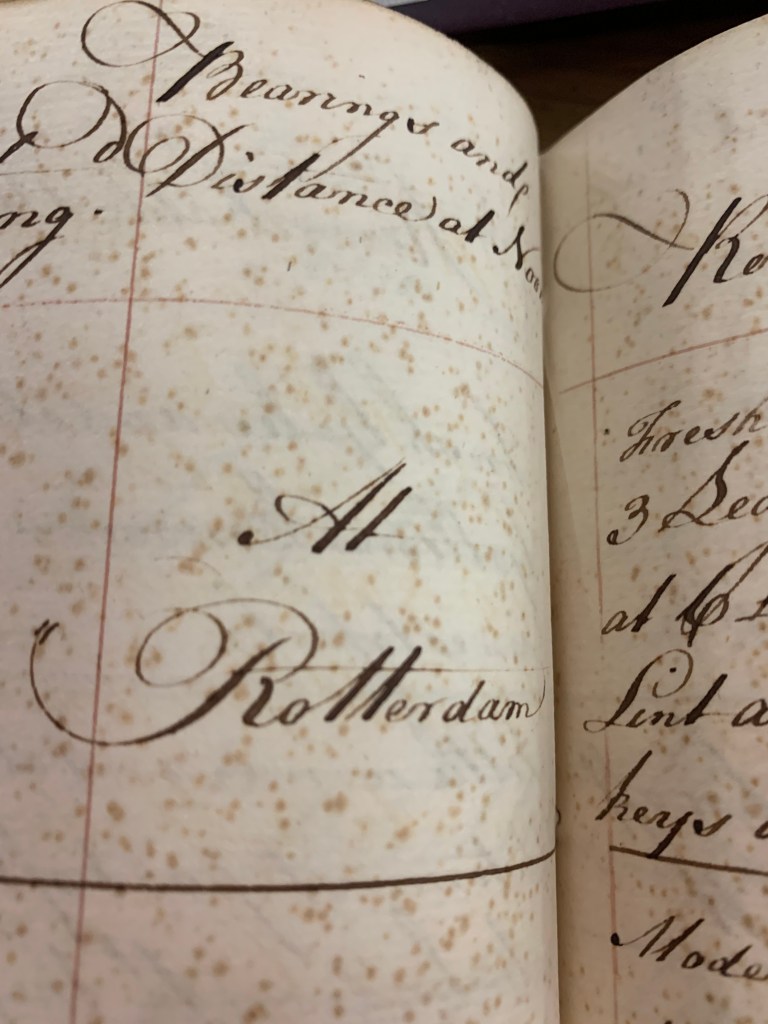 Bearings and
Distance at Noon
ng.
At
Rotterdam
Fresh
3
at 6
Lint a
keys
Mode